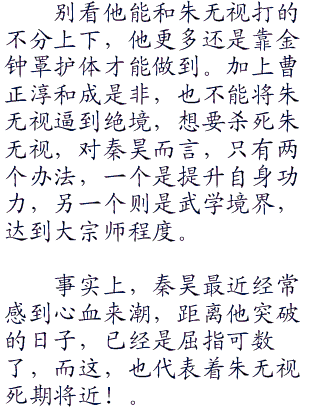 别看他能和朱无视打的
不分上下，他更多还是靠金
钟罩护体才能做到。加上曹
正淳和成是非，也不能将朱
无视逼到绝境，想要杀死朱
无视，对秦昊而言，只有两
个办法，一个是提升自身功
力，另一个则是武学境界，
达到大宗师程度。
事实上，秦昊最近经常
感到心血来潮，距离他突破
的日子，已经是屈指可数
了，而这，也代表着朱无视
死期将近！。